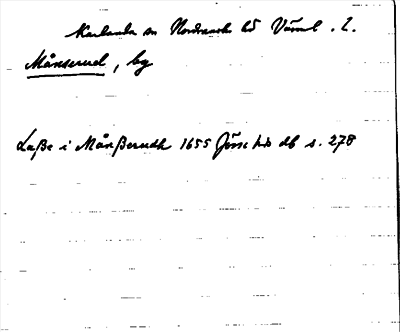 Karlanda sn Nordmark hd Värml. l.
Månserud, by
Laße i Månßerudh 1655 Jösse hds db s. 278